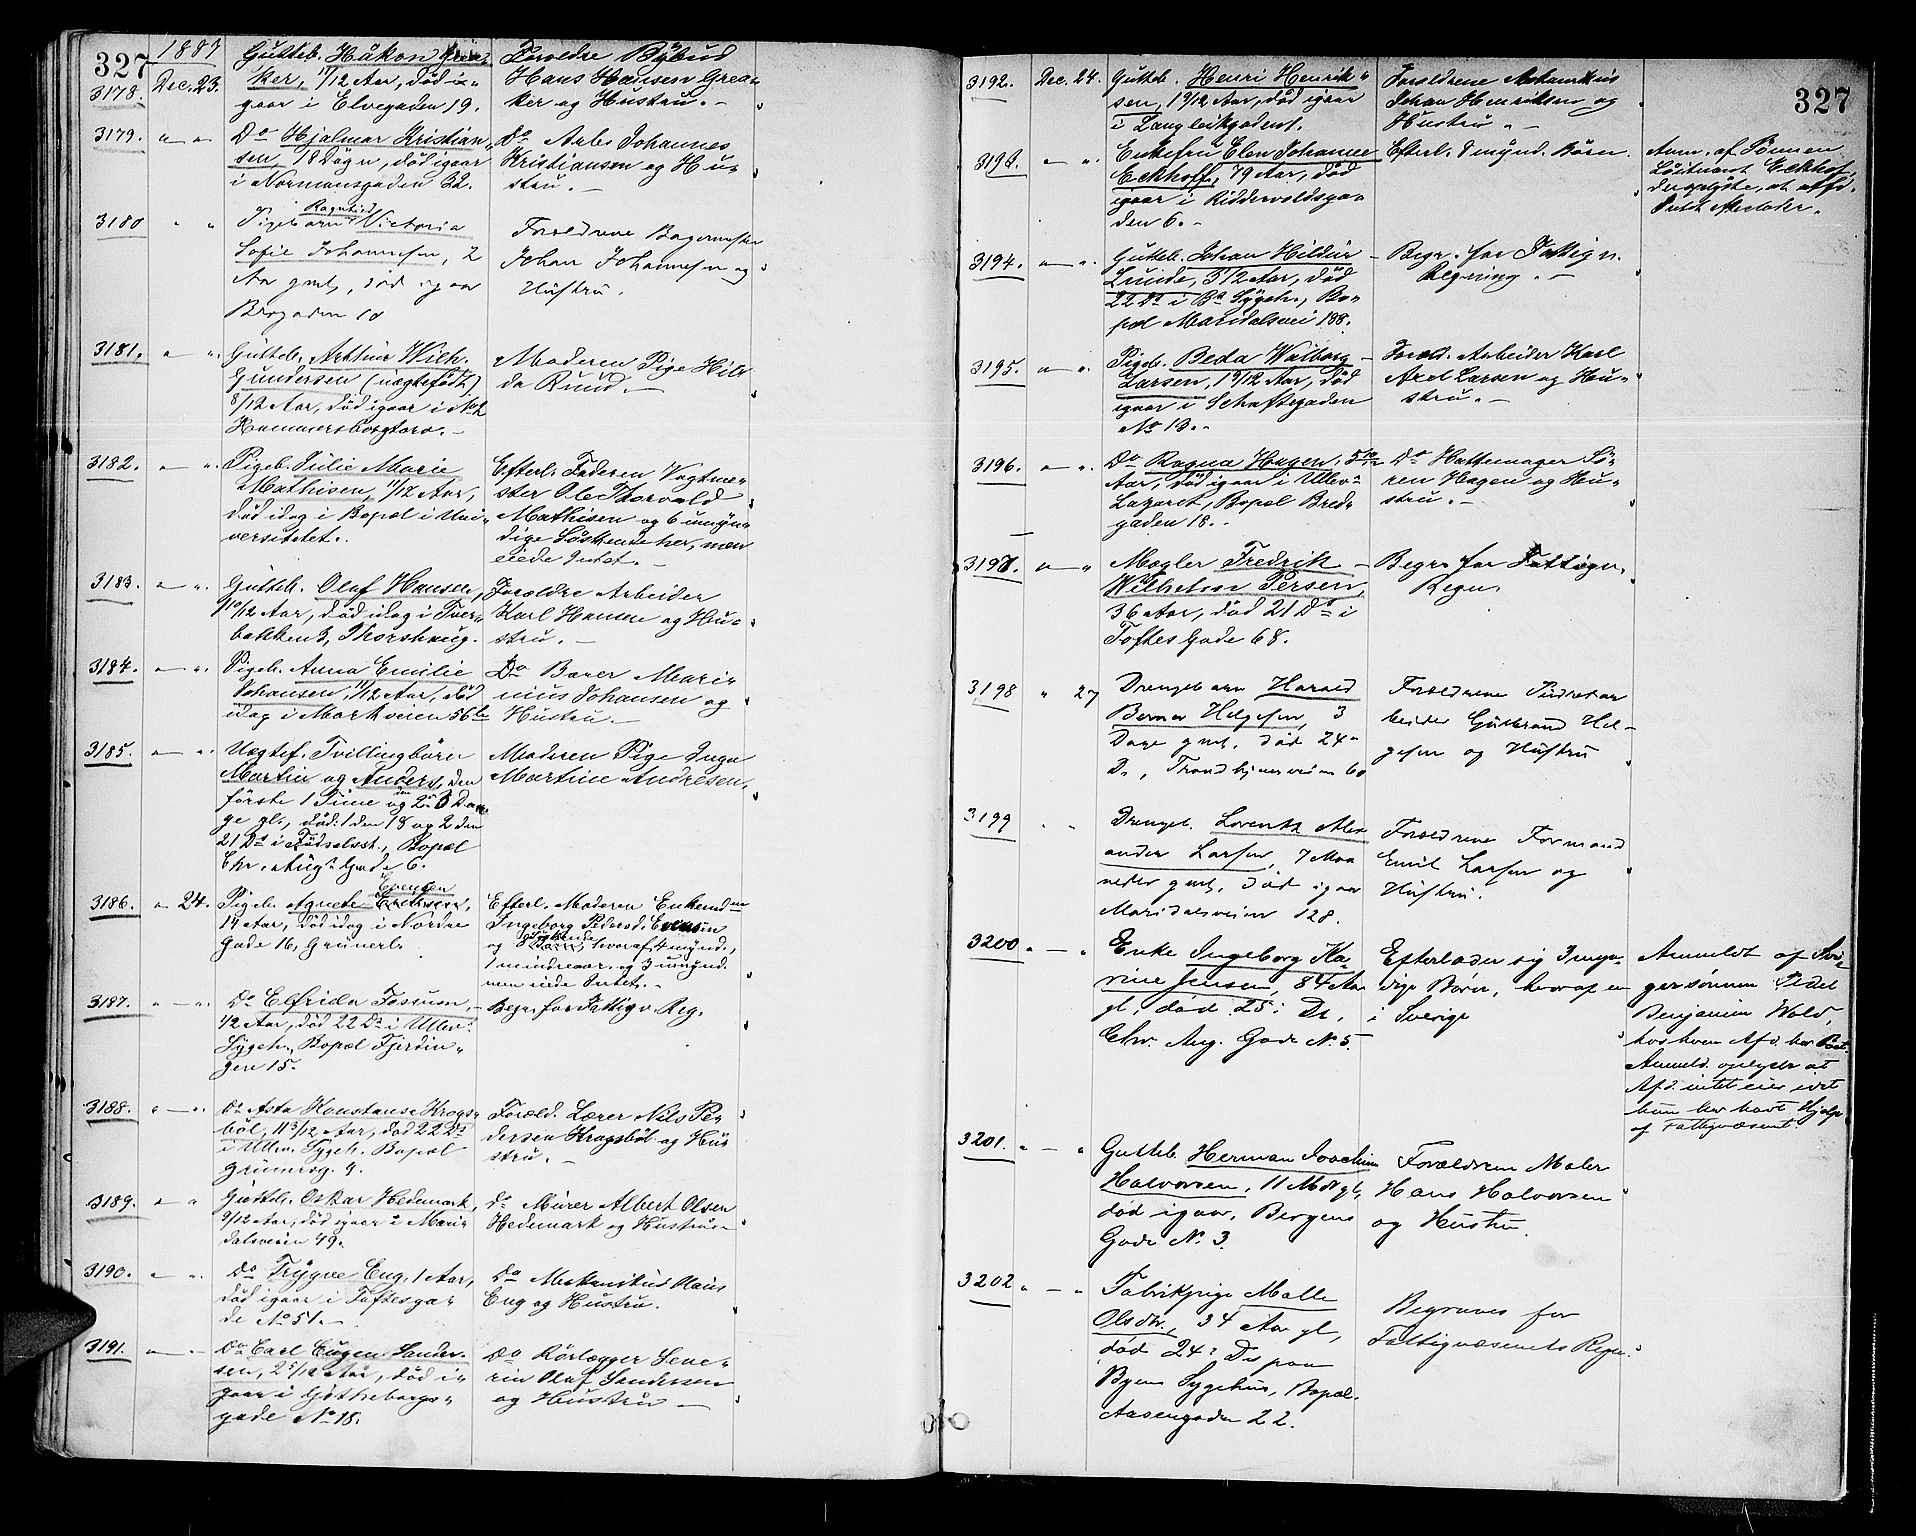 327
1887
3178. Dec. 23. Gutteb. Håkon Grea-
ker, 11/12 Aar, död i-
gaar i Elvegaden 19.
Foreldre Bÿbud
Hans Hansen Grea-
ker og Hustru. -
3179. Do Hjalmar Kristian-
sen, 18 Dögn, död igaar
i Normansgaden 32.
Do Arb. Johannes
Kristiansen og Hu-
stru. -
3180 Pigebarn Ragnhild Victoria
Sofie Johannesen, 2
Aar gml, död igaar
Brogaden 10
Foreldrene Bagermester
Johan Johannesen og
Hustru.
3181. Gutteb. Arthur Wilh.
Gundersen (uægtefödt)
8/12 Aar, död igaar i No 2
Hammersborgtorv. -
Moderen Pige Hil-
da Ruud. -
3182. Pigeb. Julie Marie
Mathisen, 11/12 Aar,
död idag i Bopæl i Uni-
versitetet.
Efterl. Faderen Vagtme-
ster Ole Thorvald
Mathisen og 6 umÿn-
dige Söskende her, men
eiede Intet. -
3183. Gutteb. Olaf Hansen,
1 10/12 Aar, död idag i Tver-
bakken 3, Thorshaug.
Foreldre Arbeider
Karl Hansen og Hu-
stru. -
3184. Pigeb. Anna Emilie
Johansen, 11/12 Aar, död
idag i Markveien 56b
Do Bærer Mari-
nius Johansen og
Hustru. -
3185. Uægtef. Tvillingbörn
Martin og Anders, den
förste 1 Time og den 2den 3 Da-
ge gl., död: 1 den 18 og 2 den
21 Ds i Födselsst., Bopæl
Chr. Aug. Gade 6.
Moderen Pige Inga
Martine Andresen.
3186. 24. Pigeb. Agnete Evensen,
14 Aar, död idag i Nordre
Gade 16, Grünerl.
Efterl. Moderen Enkemdm
Ingeborg Pedersd. Evensen
og 8 Söskende, hvoraf 4 mÿnd.,
1 mindreaar. og 3 umÿnd.
men eiede Intet. -
3187. Do Elfrida Fossum,
1/2 Aar, död 22 Ds i Ullev.
Sÿgeh., Bopæl Fjerdin-
gen 15.
Begr. for Fattigv. Reg.
3188. Do Asta Konstanse Krogs-
böl, 11 3/12 Aar, död 22 Ds
i Ullev. Sÿgeh. Bopæl
Grünersg. 9.
Foræld. Lærer Nils Pe-
dersen Krogsböl og Hus-
tru. -
3189. Gutteb. Oskar Hedemark,
9/12 Aar, död igaar i Mari-
dalsveien 49.
Do Murer Albert Olsen
Hedemark og Hustru -
3190. Do Trÿgve Eng, 1 Aar,
död igaar i Toftesga-
de No 51. -
Do Mekanikus Hans
Eng og Hustru.
3191. Do Carl Eugen Sander-
sen, 2 5/12 Aar, död i-
gaar i Götheborgs-
gade No 18.
Do Rörlægger Seve-
rin Olaf Sandersen
og Hustru -
327
3192. Dec. 24. Gutteb. Henri Henrik-
sen, 1 9/12 Aar, död igaar
i Langleikgaden 1.
Foreldrene Mekanikus
Johan Henriksen og
Hustru. -
3193. Enkefru Elen Johanne
Eckhoff, 79 Aar, död
igaar i Riddervoldsga-
den 6. -
Efterl. mÿnd. Börn.
Anm. af Sönnen
Löitnant Eckhof,
der oplÿste, at afd.
Intet efterlader.
3194. Gutteb. Johan Hildur
Lunde, 3 1/2 Aar, död
22 Ds i Bs Sÿgeh., Bo-
pæl Maridalsvei 188.
Begr. for Fattigv.
Regning. -
3195. Pigeb. Beda Walborg
Larsen, 1 9/12 Aar, död
igaar i Schaftsgaden
No 13. -
Foræld. Arbeider Karl
Axel Larsen og Hu-
stru. -
3196. Do Ragna Hagen, 5 10/12
Aar, död igaar i Ullev.
Lazaret, Bopæl Bred-
gaden 18. -
Do Hattemager Sö-
ren Hagen og Hu-
stru. -
3197. Mægler Fredrik
Wilhelm Persen,
36 Aar, död 21 Ds i
Toftes Gade 68.
Begr. for Fattigv.
Regn.
3198 27 Drengebarn Harald
Berner Helgesen, 3
Dage gml. död 24-
Ds, Trondhjemsveien 60
Foreldrene Industiar
beider Gulbrand Hel-
gesen og Hustru
3199 Drengeb. Lorentz Alex
ander Larsen, 7 Maa
neder gml, död igaar
Maridalsveien 128.
Foreldrene Formand
Emil Larsen og
Hustru.
3200 Enke Ingeborg Ka-
rine Jensen, 84 Aar
gl, död 25 i Ds,
Chr. Aug. Gade No 5.
Efterlader sig 3 myn-
dige Börn, hvoraf en
i Sverige
Anmeldt af Svi-
gersönnen Pedel
Benjamin Wold,
hos hvem Afd. har
Anmeld. oplyste at
Afd. intet eier idet
hun har havt Hjælp
af Fattigvæsenet.
3201. Gutteb. Herman Joachim
Halvorsen, 11 Mdr gl,
död igaar, Bergens
Gade No 3.
Forældrene Maler
Hans Halvorsen
og Hustru
3202 Fabrikpige Malle
Olsdtr., 34 Aar gl,
död 24: Ds paa
Byens Sygehus, Bopæl.
Aasengaden 22.
Begraves for
Fattigvæsenets Regn.